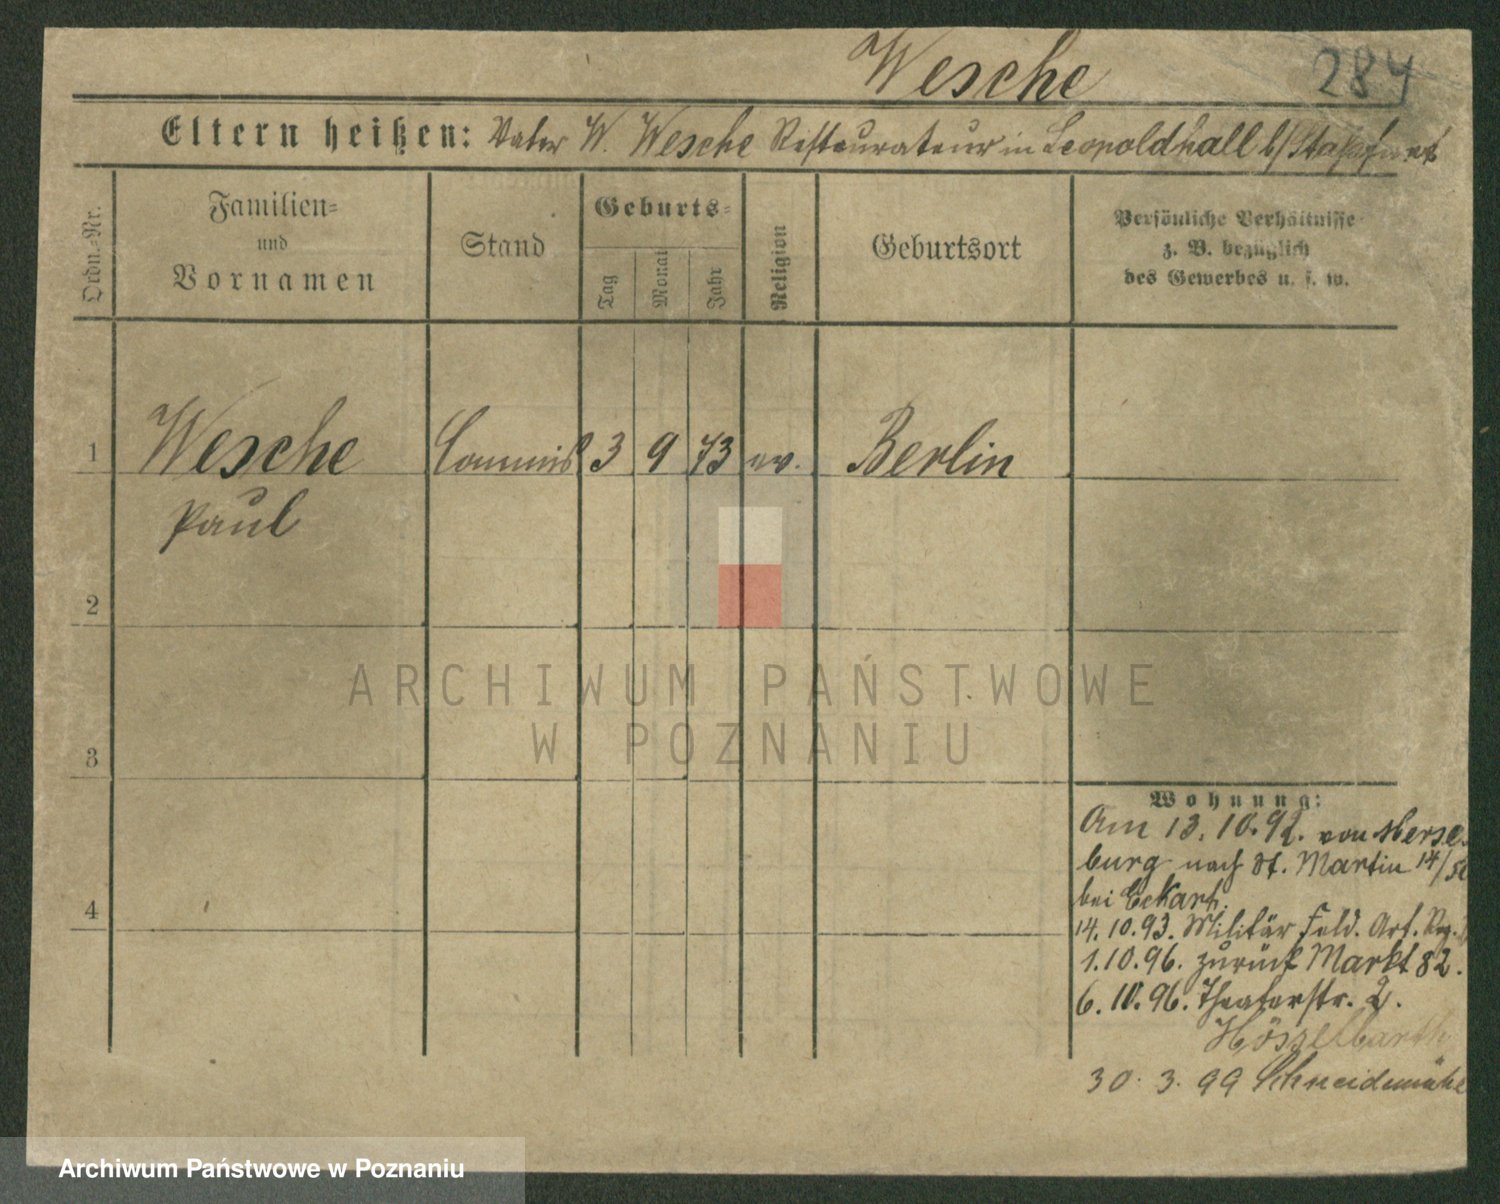 Wesche 284
Eltern heißen: Vater W. Wesche Restaurateur in Leopoldshall b/Stassfurt
Ordn.-Nr.
Familien-
und
Vornamen
Stand
Geburts-
Tag
Monat
Jahr
Religion
Geburtsort
Persönliche Verhältnisse
z. B. bezüglich
des Gewerbes u. s. w.
1 Wesche Commis 3 9 73 ev. Berlin
Paul
2
3
4
ARCHIWUM PAŃSTWOWE
W POZNANIU
Wohnung:
Am 13.10.92. von Merse-
burg nach St. Martin 14/
bei Eckart.
14.10.93. Militär Feld. Art. Reg.
1.10.96. zurück Markt 82.
6.10.96. Theaterstr. 2.
Hösselbarth
30.3.99 Schneidemühl
Archiwum Państwowe w Poznaniu